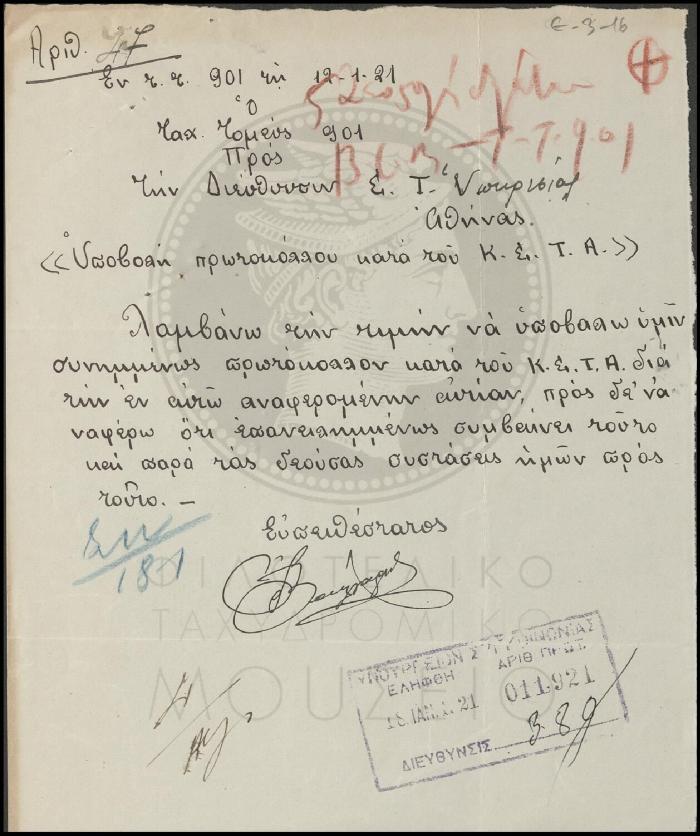 Ε-3-16
Αριθ. 47
Εν τ. τ. 901 τῇ 12-1-21
Ὁ
Ταχ. Τομεὺς 901
Πρὸς
Τὴν Διεύθυνσιν Σ. Τ. Ὑπηρεσίας
Ἀθήνας.
«Ὑποβολὴ πρωτοκόλλου κατὰ τοῦ Κ. Σ. Τ. Α.»
Λαμβάνω τὴν τιμὴν νὰ ὑποβάλω ὑμῖν
συνημμένως πρωτόκολλον κατὰ τοῦ Κ. Σ. Τ. Α. διὰ
τὴν ἐν αὐτῷ ἀναφερομένην αἰτίαν, πρὸς δὲ νὰ
ναφέρω ὅτι ἐπανειλημμένως συμβαίνει τοῦτο
καὶ παρὰ τὰς δεούσας συστάσεις ἡμῶν πρὸς
τοῦτο. —
Εὐπειθέστατος
ΦΙΛΟΤΕΛΙΚΟ
ΤΑΧΥΔΡΟΜΙΚΟ
ΜΟΥΣΕΙΟ
ΥΠΟΥΡΓΕΙΟΝ ΣΥΓΚΟΙΝΩΝΙΑΣ
ΕΛΗΦΘΗ ΑΡΙΘ ΠΡΩΤ.
18 ΙΑΝ. 21 011921
ΔΙΕΥΘΥΝΣΙΣ 389